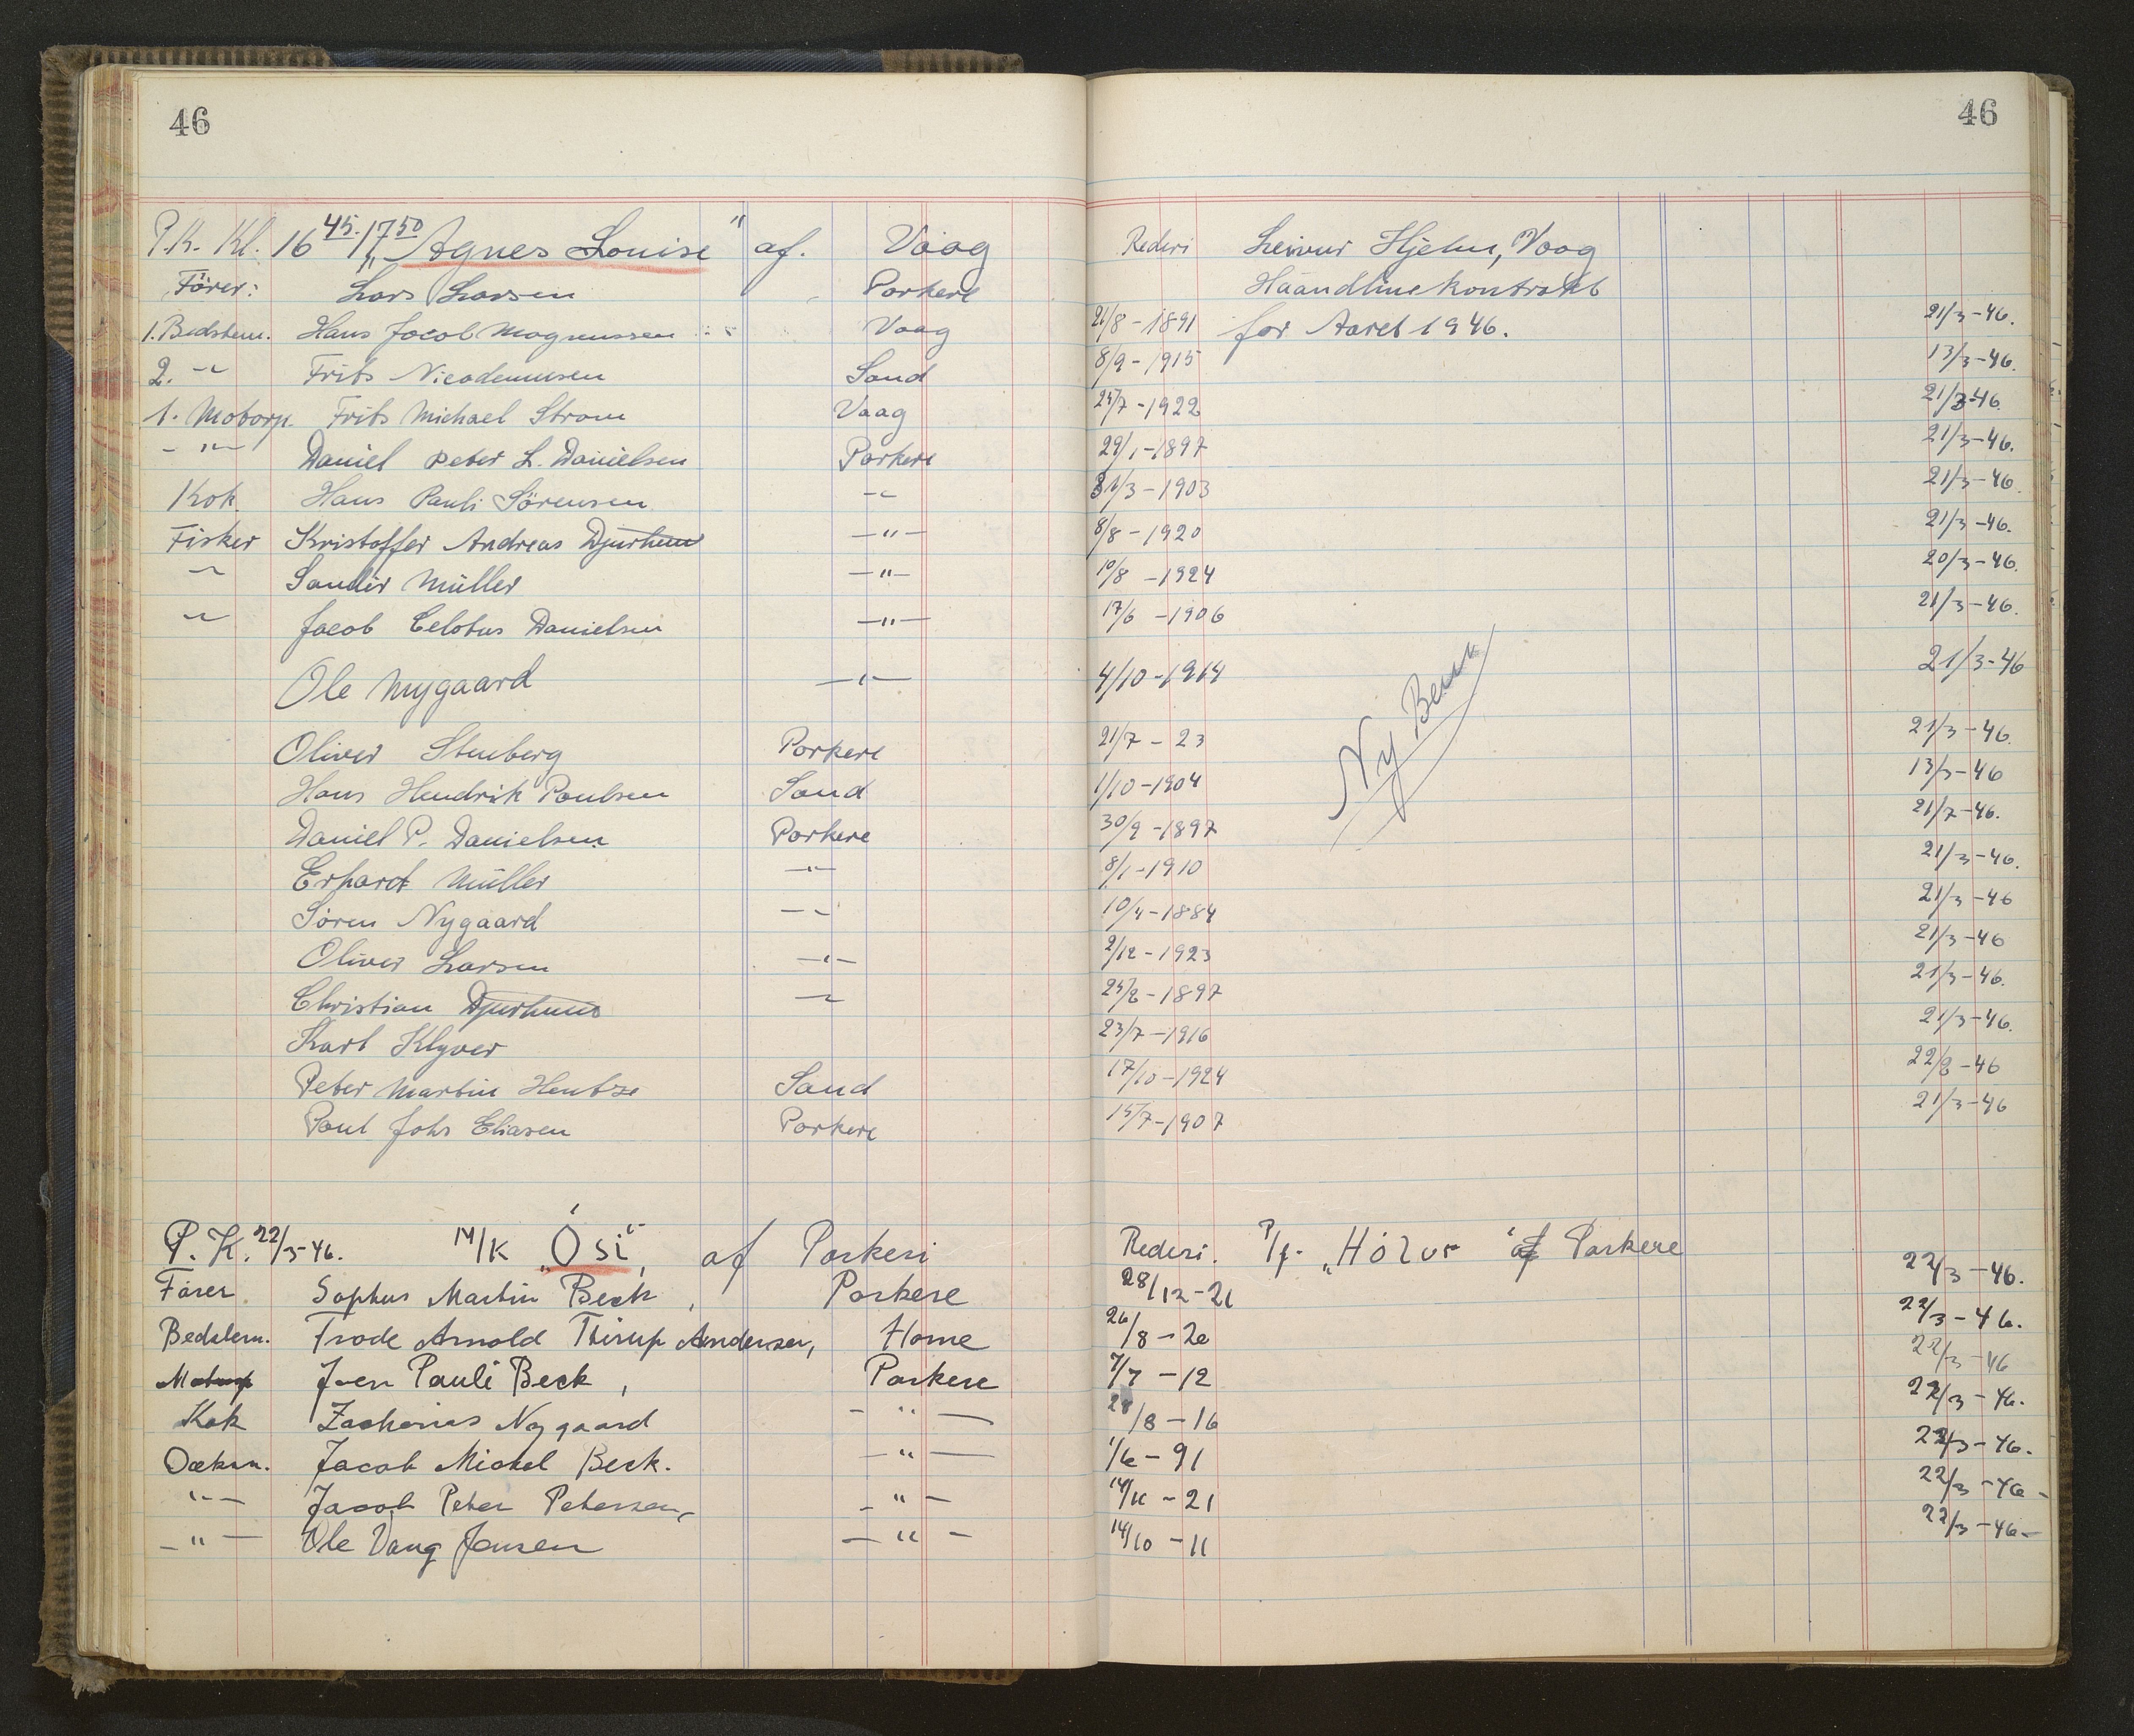 46 46
P.K. Kl. 16 45. 17 50 „Agnes Louise" af. Vaag Rederi Leivur Hjelm, Vaag
Förer: Lars Larsen Porkere Haandlinekontrakt
1. Bedstem. Hans Jacob Magnussen Vaag 21/8-1891 for Aaret 1946. 21/3-46.
2. -"- Frits Nicodemusen Sand 8/9-1915 13/3-46.
1. Motorp. Frits Michael Strøm Vaag 25/7-1922 21/3-46.
-"- Daniel Peter L. Danielsen Porkere 29/1-1897 21/3-46.
Kok Hans Pauli Sörensen -"- 31/3-1903 21/3-46.
Fisker Kristoffer Andreas Djurhuus -"- 8/8-1920 21/3-46.
-"- Sander Müller -"- 10/8-1924 20/3-46.
-"- Jacob Celotus Danielsen -"- 17/6-1906 21/3-46.
Ole Nygaard -"- 4/10-1914 21/3-46
Ny Bem
Oliver Stenberg Porkere 21/7-23 21/3-46.
Hans Hendrik Poulsen Sand 1/10-1904 13/3-46
Daniel P. Danielsen Porkere 30/9-1897 21/7-46.
Erhart Müller -"- 8/1-1910 21/3-46.
Sören Nygaard -"- 10/4-1884 21/3-46
Oliver Larsen -"- 2/12-1923 21/3-46
Christian Djurhuus -"- 25/8-1897 21/3-46.
Karl Klyver 23/7-1916 21/3-46.
Peter Martin Hentze Sand 17/10-1924 22/8-46
Poul Johs Eliasen Porkere 15/7-1907 21/3-46
P.K. 22/3-46. M/K „Ósi" af Porkeri Rederi. P/f. „Hólur" af Porkere
Fører Sophus Martin Beck, Porkere 28/12-21 22/3-46.
Bedstem. Frode Arnold Thirup Andersen, Home 26/8-20 22/3-46.
Motorp Jven Pauli Beck, Porkere 7/7-12 22/3-46
Kok Zacharias Nygaard -"- 28/8-16 22/3-46.
Dæksm. Jacob Mickel Beck. -"- 1/6-91 22/3-46.
-"- Jacob Peter Petersen, -"- 14/11-21 22/3-46-
-"- Ole Vang Jensen -"- 14/10-11 22/3-46-